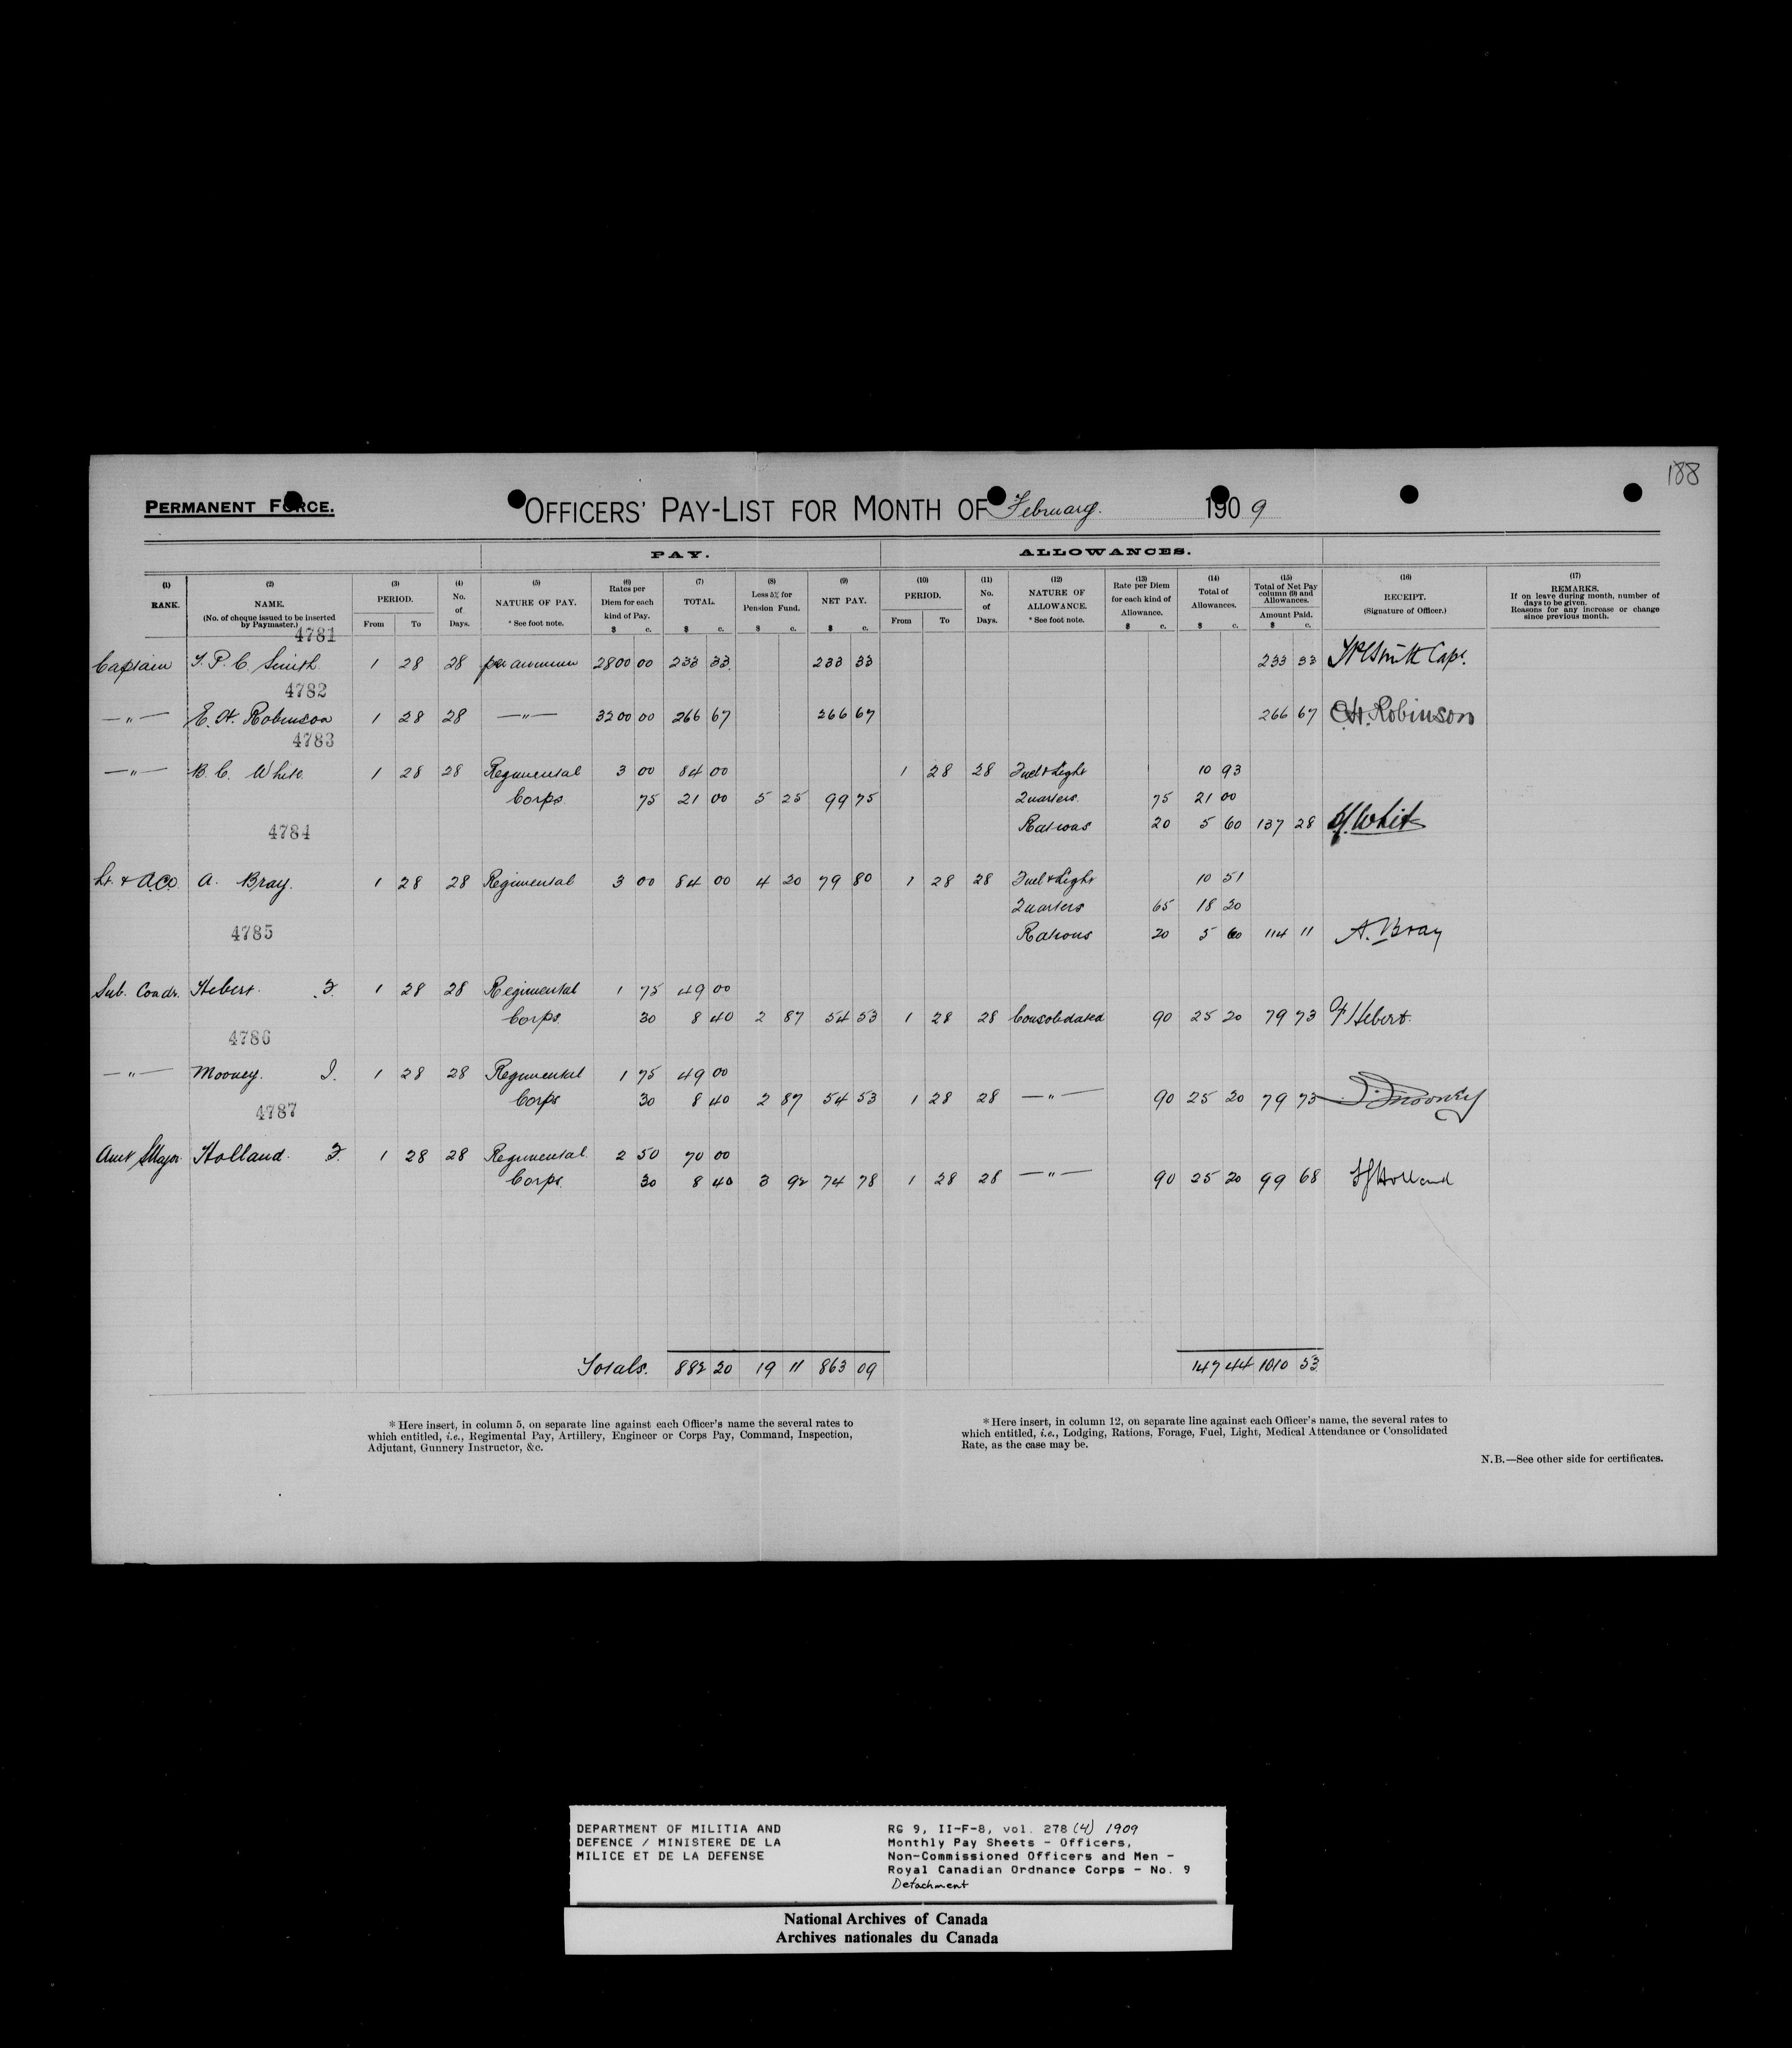 188
PERMANENT FORCE. OFFICERS' PAY-LIST FOR MONTH OF February. 1909
PAY. ALLOWANCES.
(1) RANK. (2) NAME. (No. of cheque issued to be inserted by Paymaster.) (3) PERIOD. From To (4) No. of Days. (5) NATURE OF PAY. * See foot note. (6) Rates per Diem for each kind of Pay. $ c. (7) TOTAL. $ c. (8) Less 5% for Pension Fund. $ c. (9) NET PAY. $ c. (10) PERIOD. From To (11) No. of Days. (12) NATURE OF ALLOWANCE. * See foot note. (13) Rate per Diem for each kind of Allowance. $ c. (14) Total of Allowances. $ c. (15) Total of Net Pay column (9) and Allowances. Amount Paid. $ c. (16) RECEIPT. (Signature of Officer.) (17) REMARKS. If on leave during month, number of days to be given. Reasons for any increase or change since previous month.
4781
Captain T. P. C. Smith 1 28 28 per annum 2800 00 233 33 233 33 233 33 Smith Capt.
4782
—"— E. H. Robinson 1 28 28 —"— 3200 00 266 67 266 67 266 67 E.H. Robinson
4783
—"— B. C. White 1 28 28 Regimental 3 00 84 00 1 28 28 Fuel & Light 10 93
Corps 75 21 00 5 25 99 75 Quarters 75 21 00
Rations 20 5 60 137 28 White
4784
Lt. & A.C.O. A. Bray. 1 28 28 Regimental 3 00 84 00 4 20 79 80 1 28 28 Fuel & Light 10 51
Quarters 65 18 20
4785 Rations 20 5 60 114 11 A. Bray
Sub. Condr. Hebert. F. 1 28 28 Regimental 1 75 49 00
Corps. 30 8 40 2 87 54 53 1 28 28 Consolidated 90 25 20 79 73 F Hebert.
4786
—"— Mooney. J. 1 28 28 Regimental 1 75 49 00
Corps 30 8 40 2 87 54 53 1 28 28 —"— 90 25 20 79 73 J. Mooney
4787
Armt S Major Holland. F. 1 28 28 Regimental 2 50 70 00
Corps. 30 8 40 3 92 74 78 1 28 28 —"— 90 25 20 99 68 Holland
Totals. 882 20 19 11 863 09 147 44 1010 53
* Here insert, in column 5, on separate line against each Officer's name the several rates to
which entitled, i.e., Regimental Pay, Artillery, Engineer or Corps Pay, Command, Inspection,
Adjutant, Gunnery Instructor, &c.
* Here insert, in column 12, on separate line against each Officer's name, the several rates to
which entitled, i.e., Lodging, Rations, Forage, Fuel, Light, Medical Attendance or Consolidated
Rate, as the case may be.
N.B.—See other side for certificates.
DEPARTMENT OF MILITIA AND
DEFENCE / MINISTERE DE LA
MILICE ET DE LA DEFENSE
RG 9, II-F-8, vol. 278 (4) 1909
Monthly Pay Sheets - Officers,
Non-Commissioned Officers and Men -
Royal Canadian Ordnance Corps - No. 9
Detachment
National Archives of Canada
Archives nationales du Canada